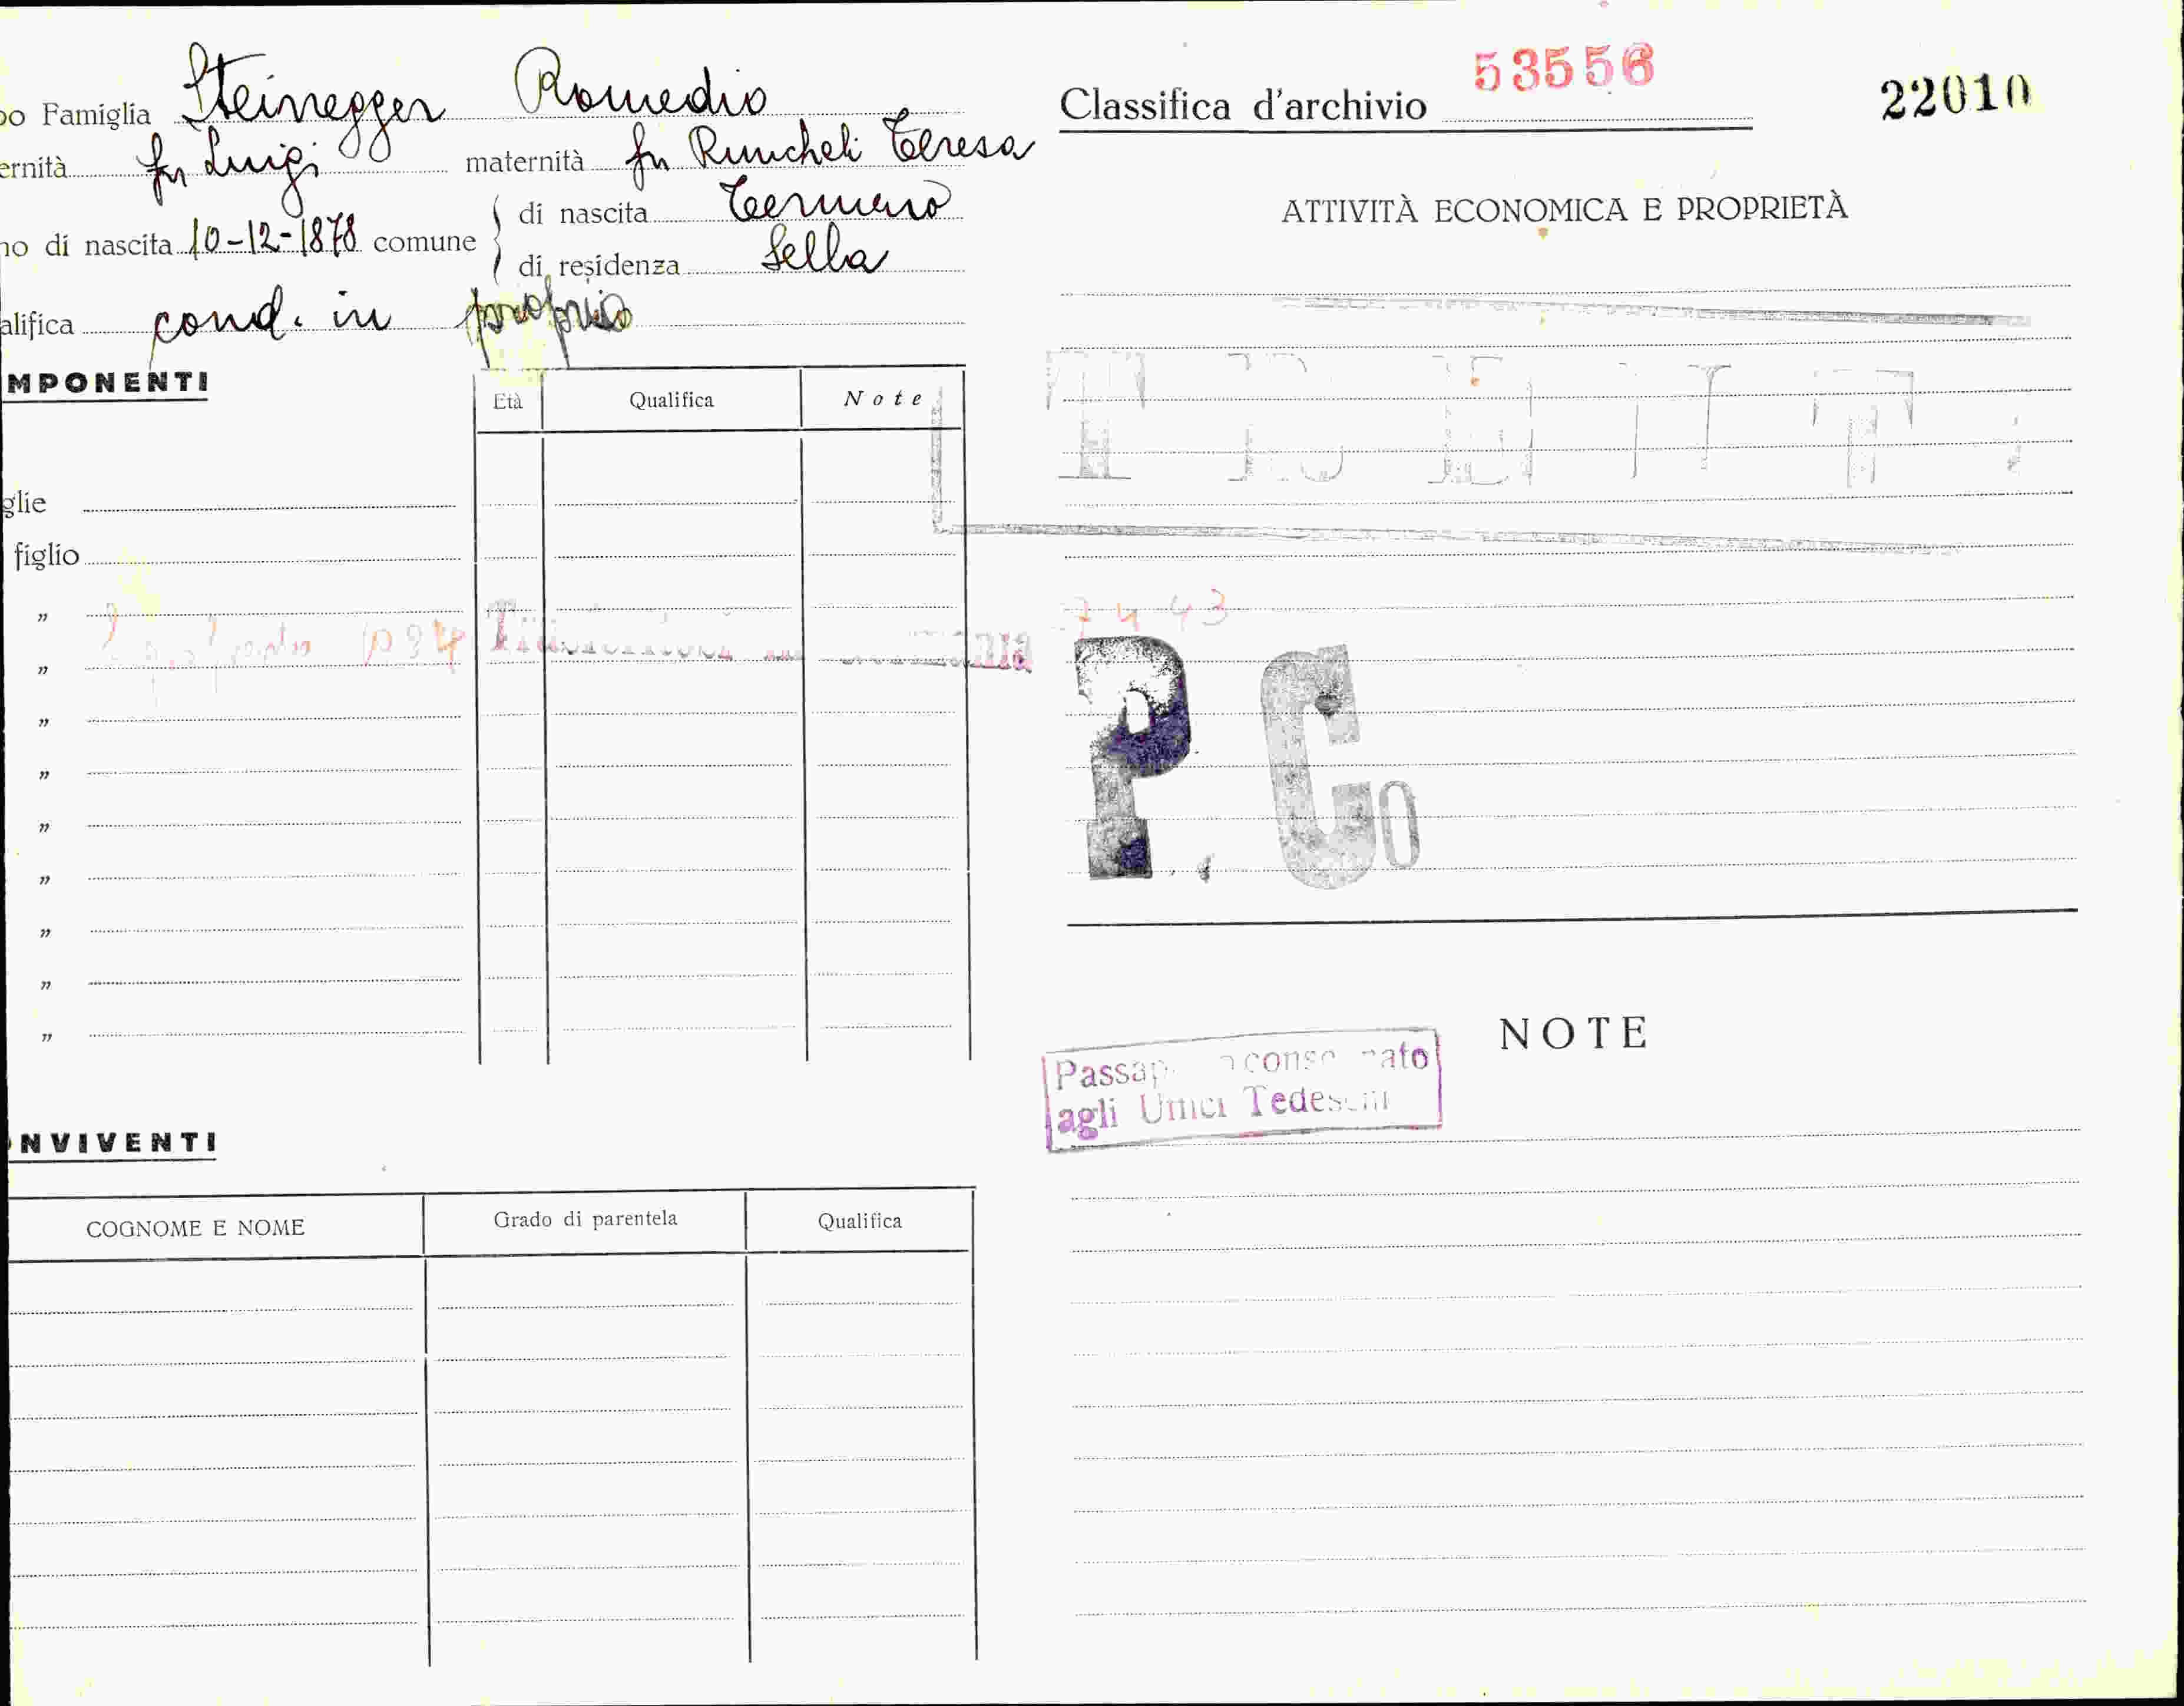 po Famiglia Steinegger Romedio
ernità fu Luigi maternità fu Runcheli Teresa
no di nascita 10-12-1878 comune di nascita Termeno
di residenza Sella
alifica cond. in proprio
MPONENTI
Età Qualifica Note
glie
figlio
"
"
"
"
"
"
"
"
"
NVIVENTI
COGNOME E NOME Grado di parentela Qualifica
Classifica d'archivio 53556
22010
ATTIVITÀ ECONOMICA E PROPRIETÀ
P. C
NOTE
agli Uffici Tedeschi